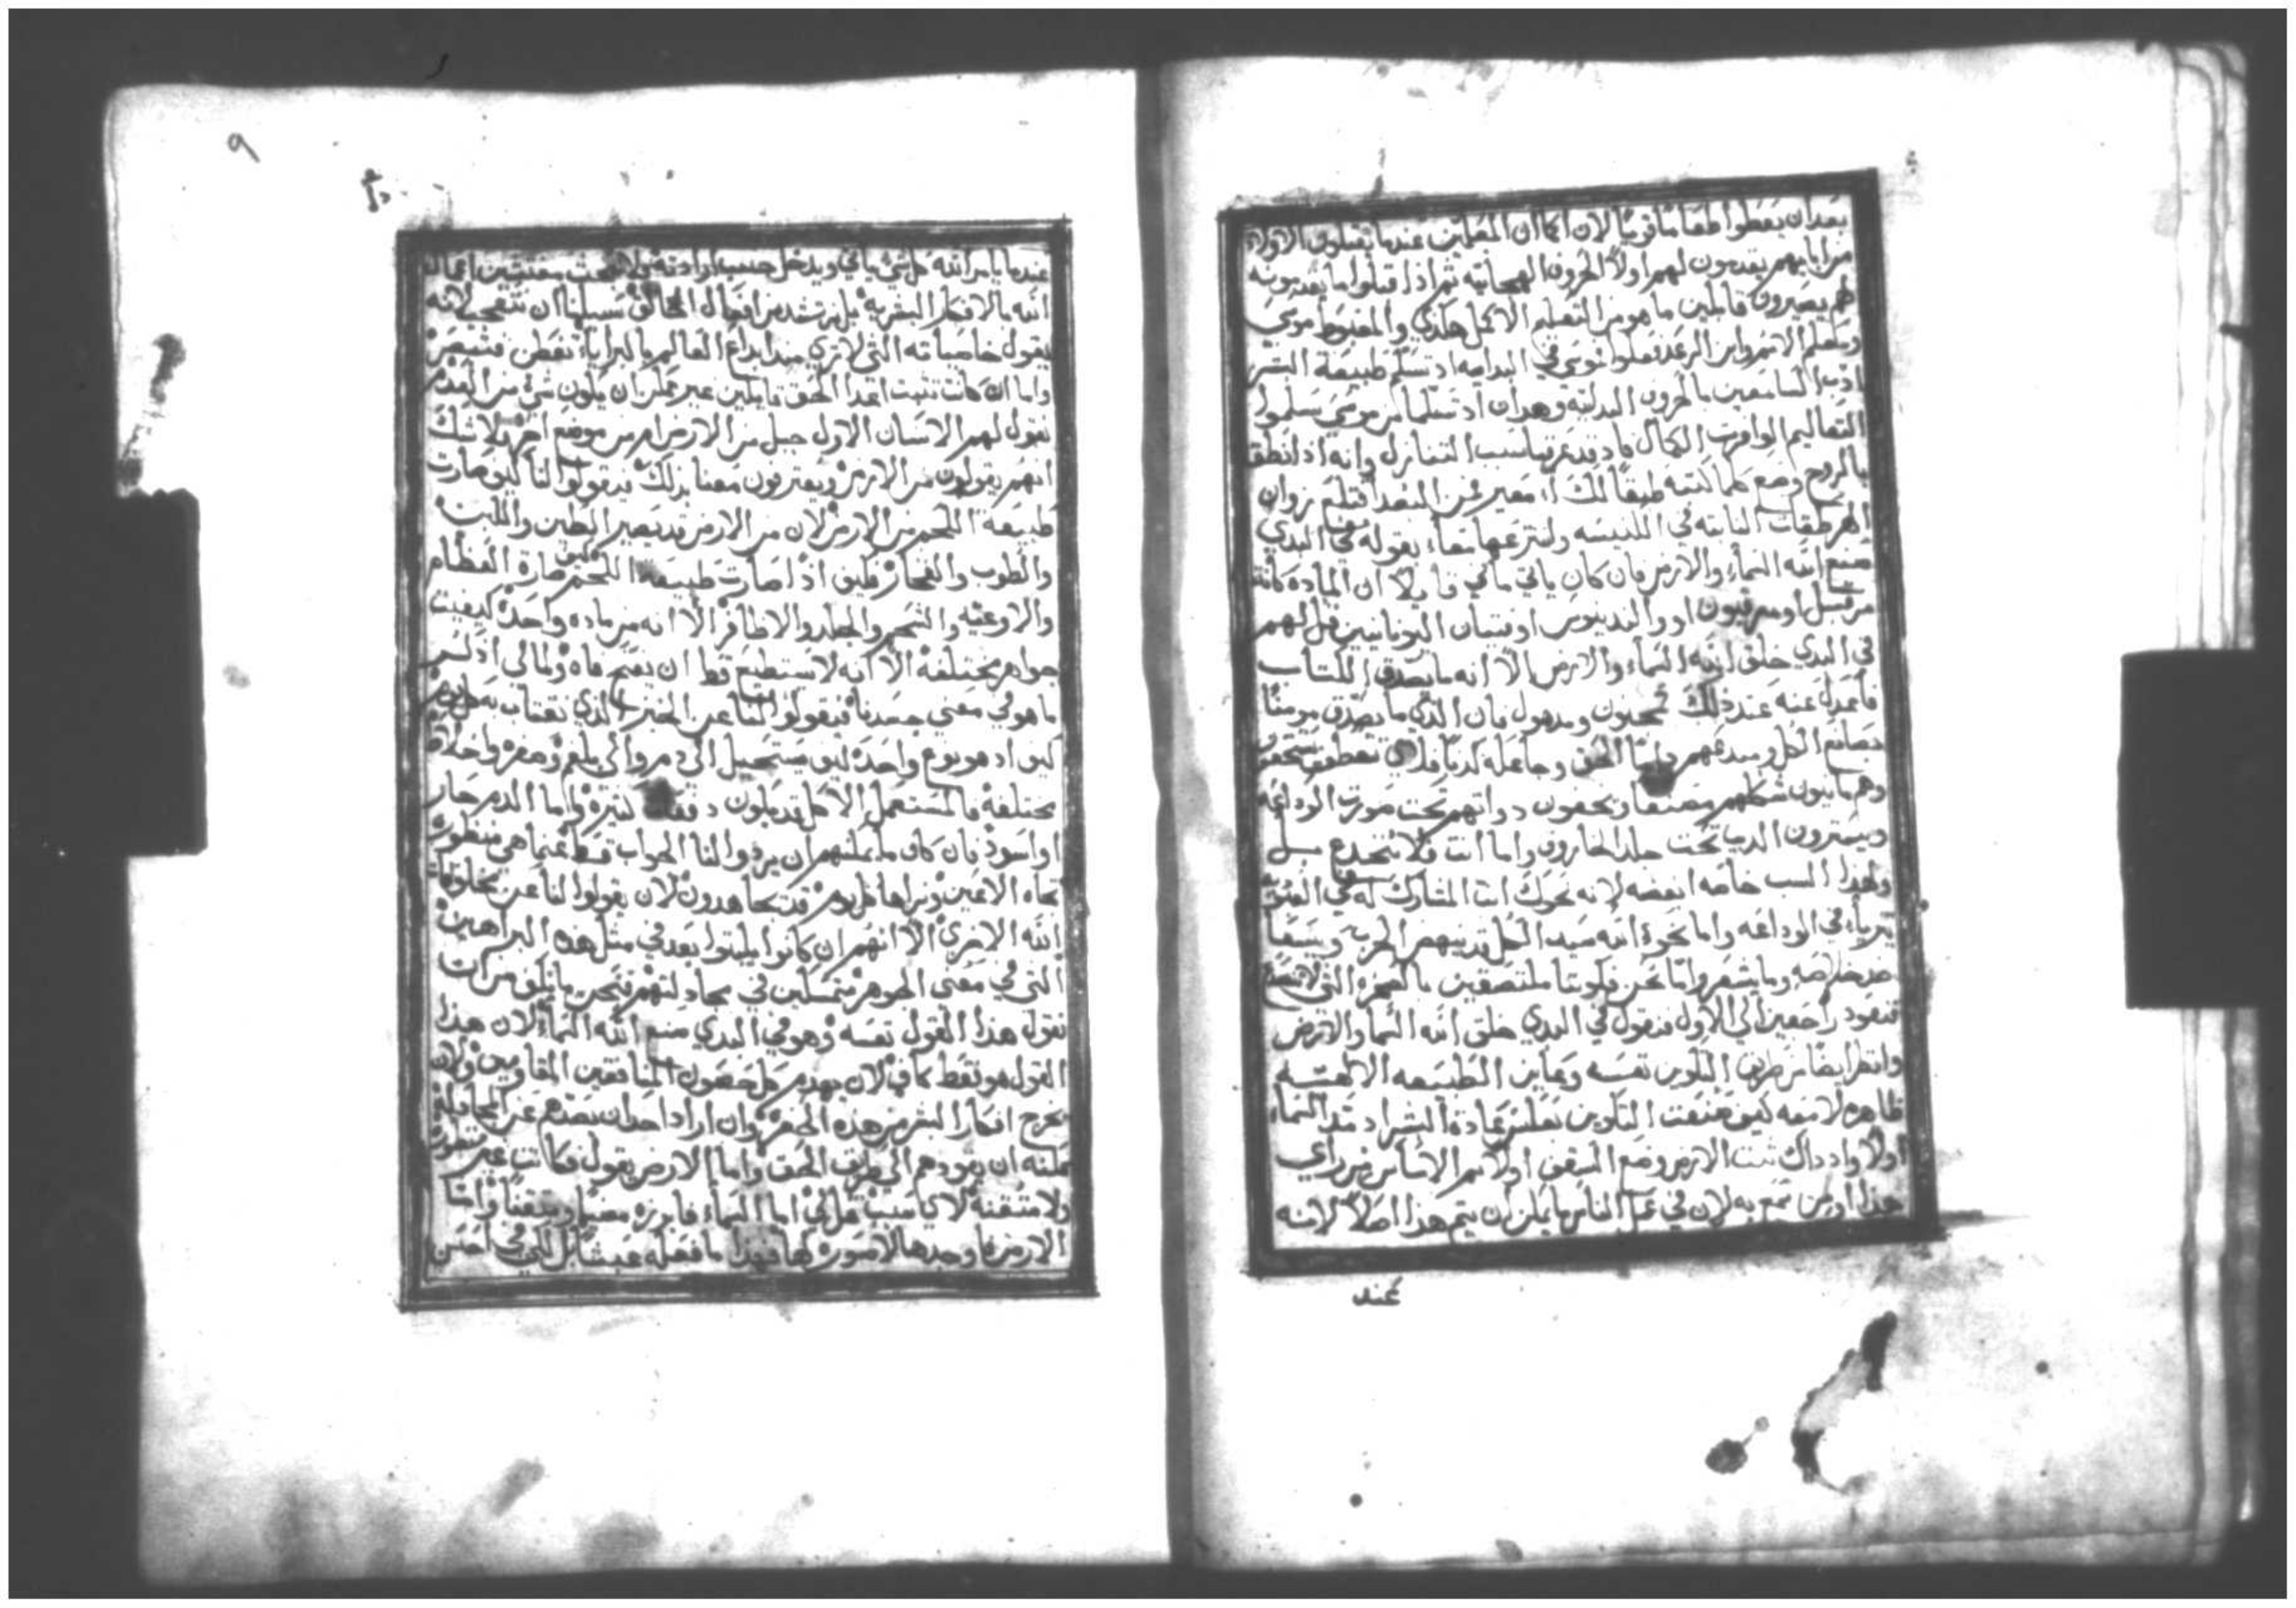 بعد ان يعطوا طعاما قويا لان كما ان المعلمين عندما يقبلون الاولاد
من ابايهم يقدمون لهم اولا الحروف الهجائيه ثم اذا قبلوا ما يقدمونه
لهم يصيرون قابلين ما هو من التعليم الاكمل هكذي والمغبوط موسي
ومعلم الامم وابن الرعد فعلوا موسي في البدايه اد تسلم طبيعة البشر
ادب السامعين بالحروف البدليه وهدان اد تسلما من موسي يسلموا
التعاليم الوافرت الكمال فاد قد عرفنا سبب التنازل وانه اد انطق
بالروح وضع كلما كتبه طبقا لك معبر عن البعد اقتلع زوان
الهرطقات النابته في الكنيسه ولنترعها معا بقوله في البدي
صنع الله السماء والارض فان كان ياتي ماني قايلا ان الماده كانت
مرقسل او مرقيون او والندينوس او فتيان اليونانيين فقل لهم
في البدي خلق الله السماء والارض الا انه ما يصدق الكتاب
فاعدل عنه عند ذلك كمجنون ومدهول فان الذي ما يصدق مومنا
بصانع الكل ومبدعهم واما الحق وجاعله كدبا فلاي تعطف يستحق
وهم ماينون شكلهم مصنعا ويخفون دواتهم تحت صورت الوداعه
ويسترون الديب تحت جلد الخاروف واما انت فلا تنخدع بل
ولهذا السبب خاصه ابغضه لانه نحوك انت المشارك له في العبوديه
يتريا في الوداعه واما نحو الله سيد الكل قد ينهم الحرب ويسعا
ضد خلاصه وما يشعر واما نحن فلوبثنا ملتصقين بالصخره التي لا تتصدع
فنعود راجعين الي الاول فنقول في البدي خلق الله السما والارض
وانظر ايضا من طريق التكوين نفسه وعاين الطبيعه الالهيه
ظاهره لامعه كيف صنعت التكوين بعكس عادة البشر اد مد السماء
اولا واد داك ثبت الارض وضع السقف اولا ثم الاساس من راي
هذا او من سمع به لان في عمل الناس ما يمكن ان يتم هذا اصلا لانه
عند
٩
عندما يامر الله كل شي ياتي ويدخل حسب ارادته فلا نبحث مفتشين اعمال
الله بالافكار البشريه بل نرتشد من افعال الخالق سبيلنا ان نتعجب لانه
يقول خاصياته التي لا تري منذ ابداع العالم بالبرايا نفطن فتبصر
واما ان كانت تثبت اعدا الحق قايلين غير ممكن ان يكون شي من العدم
نقول لهم الانسان الاول جبل من الارض ام من موضع اخر فلا شك
انهم يقولون من الارض ويعترفون معنا بذلك فيقولوا لنا كيف صارت
طبيعة اللحم من الارض لان من الارض قد يصير الطين واللبن
والطوب والفخار فكيف اذا صارت طبيعة اللحم كيف صارة العظام
والاوعيه والشحم والجلد والاظافر الا انه من ماده واحده كيفيت
جواهر مختلفة الا انه لا يستطيع قط ان يفتح فاه ولمالي اذكر
ما هو في معني جسدنا فيقولوا لنا عن الخبز الذي نقتات به كل يوم
كيف اد هو نوع واحد كيف يستحيل الي دم والي بلغم وصفره واخلاط
مختلفة فالمستعمل الاكل قد يكون دفقة كثيرة واما الدم حار
او اسود فان كان ما يمكنهم ان يردوا لنا الجواب قط عنما هي منظوره
تجاه الاعين ونراها كل يوم قد يجاهدون لان يقولوا لنا عن مخلوقات
الله الاخري الا انهم ان كانوا يلبثوا بعد في مثل هذه البراهين
التي في معني الجوهر متمسكين في مجادلتهم فنحن ما نكف مرات
نقول هذا القول نفسه وهو في البدي صنع الله السماء لان هذا
القول هو فقط كاف لان يهدم كل حصون المنافقين المقاومين ولان
يخرج افكار البشر من هذه الحفره وان اراد احد ان يصدهم عن المجادله
يمكنه ان يقودهم الي طريق الحق واما الارض يقول فكانت غير منظوره
ولا متقنه لاي سبب قل لي اما السماء فابرزه مضيا ومتقنا واما
الارض فاوجدها لا صورة لها فهذا ما فعله عبثا بل لكي في احسن